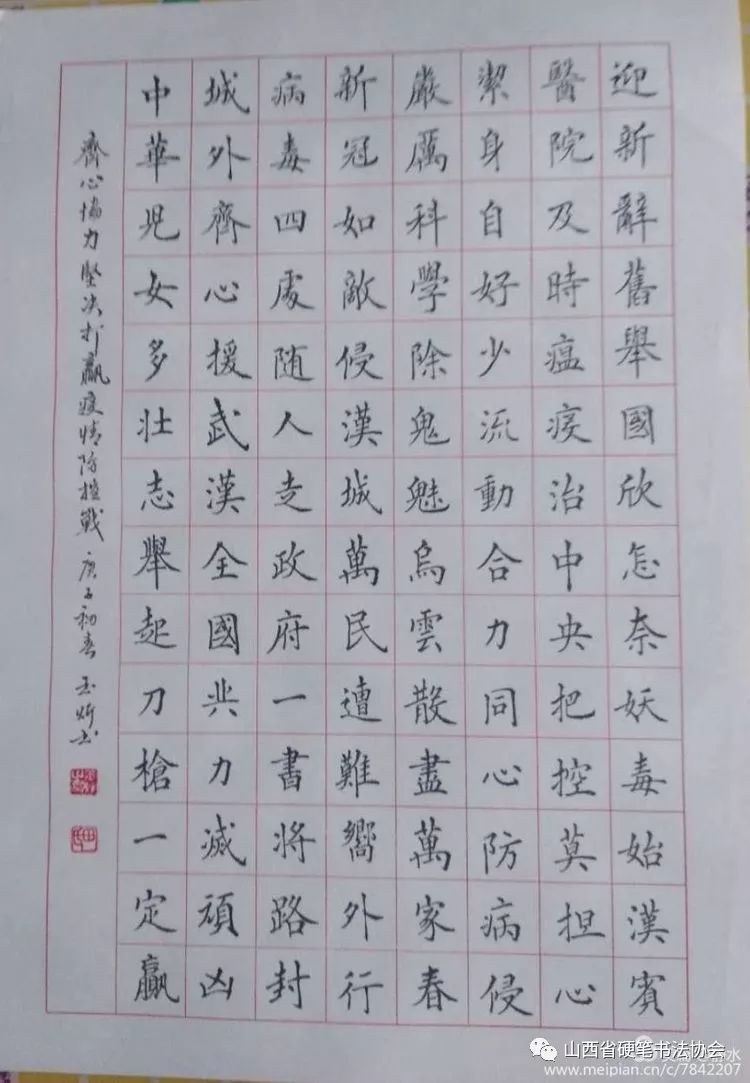 迎新辭舊舉國欣怎奈妖毒始漢賓
醫院及時瘟疫治中央把控莫担心
潔身自好少流動合力同心防病侵
嚴厲科學除鬼魅烏雲散盡萬家春
新冠如敵侵漢城萬民遭難嚮外行
病毒四處随人走政府一書將路封
城外齊心援武漢全國共力滅頑凶
中華児女多壮志舉起刀槍一定贏
齊心協力堅决打贏疫情防控戰 庚子初春 玉
山西省硬笔书法协会
www.meipian.cn/c/7842207